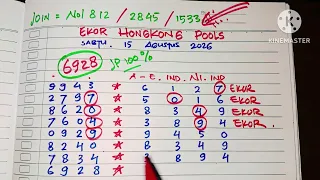 JOIN = No1 812 / 2845 / 1533
EKOR HONGKONG POOLS
SABTU. 15 AGUSTUS 2026
6928 JP 100%
A - E. IND. NI. IND
9943 * 6 1 2 7 EKOR
2797 * 5 0 1 6 EKOR
8620 * 8 3 4 9 EKOR
7604 * 3 8 9 4 EKOR.
0929 * 9 4 5 0
8240 * 8 3 4 9
7834 * 3 8 9 4
6928 *
KINEMASTER